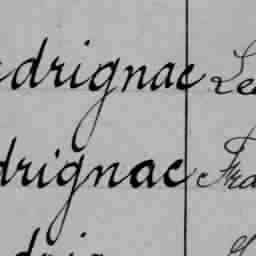 drignac Le
drignac Fra
drig